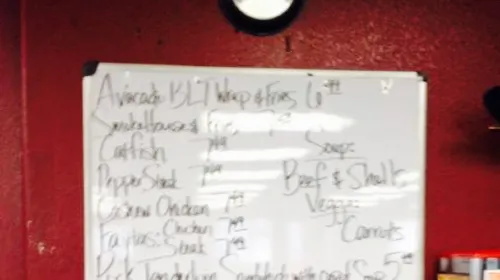 Avacado BLT Wrap & Fries 6.99
Smokehouse &
Catfish 7.99
Pepper Steak 7.99
Cashew Chicken 7.99
Fajitas: Chicken 7.99
Steak 7.99
Pork Tenderloin Sandwich with
Soup:
Beef &
Veggie:
Carrots